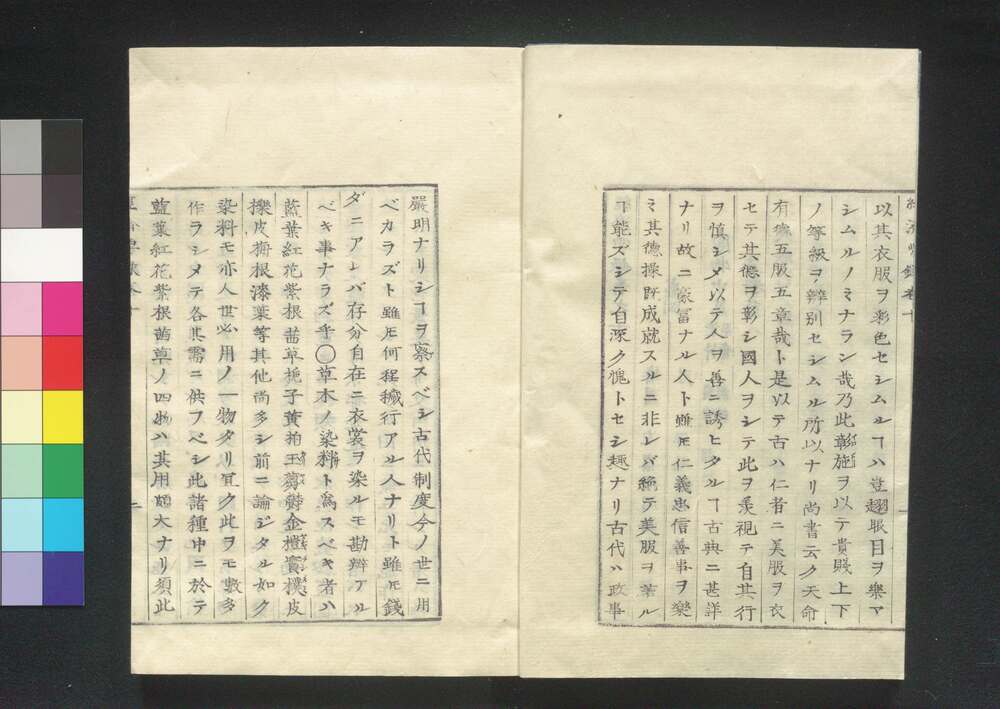 以其衣服ヲ彩色セシムルヿハ豈翅眼目ヲ樂マ
シムルノミナラン哉乃此彰施ヲ以テ貴賤上下
ノ等級ヲ辨别セシムル所以ナリ尚書云ク天命
有德五服五章哉ト是以テ古ハ仁者ニ美服ヲ衣
セテ其德ヲ彰シ國人ヲシテ此ヲ羨視テ自其行
ヲ慎シメ以テ人ヲ善ニ誘ヒタルヿ古典ニ甚詳
ナリ故ニ豪冨ナル人ト雖𪜈仁義忠信善事ヲ樂
ミ其德操既成就スルニ非レバ絶テ美服ヲ着ル
ヿ能ズシテ自深ク愧トセシ趣ナリ古代ハ政事
嚴明ナリシヿヲ察スベシ古代制度今ノ世ニ用
ベカラズト雖𪜈何程穢行アル人ナリト雖𪜈錢
ダニアレバ存分自在ニ衣裳ヲ染ルモ勘辨アル
ベキ事ナラズ乎〇草木ノ染料ト爲スベキ者ハ
藍葉紅花紫根茜草梔子黄柏王芻欝金橿實樸皮
橡皮梅根漆葉等其他尚多シ前ニ論ジタル如ク
染料モ亦人世必用ノ一物タリ冝ク此ヲモ數多
作ラシメテ各其需ニ供フベシ此諸種中ニ於テ
藍葉紅花紫根茜草ノ四物ハ其用頗大ナリ須此